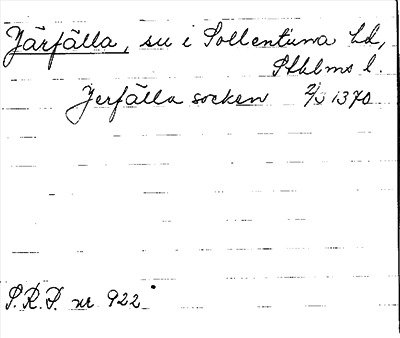 Järfälla, su i Sollentuna hd,
Sthlms l.
Jerfälla socken 2/5 1370
S.R.P. nr 922